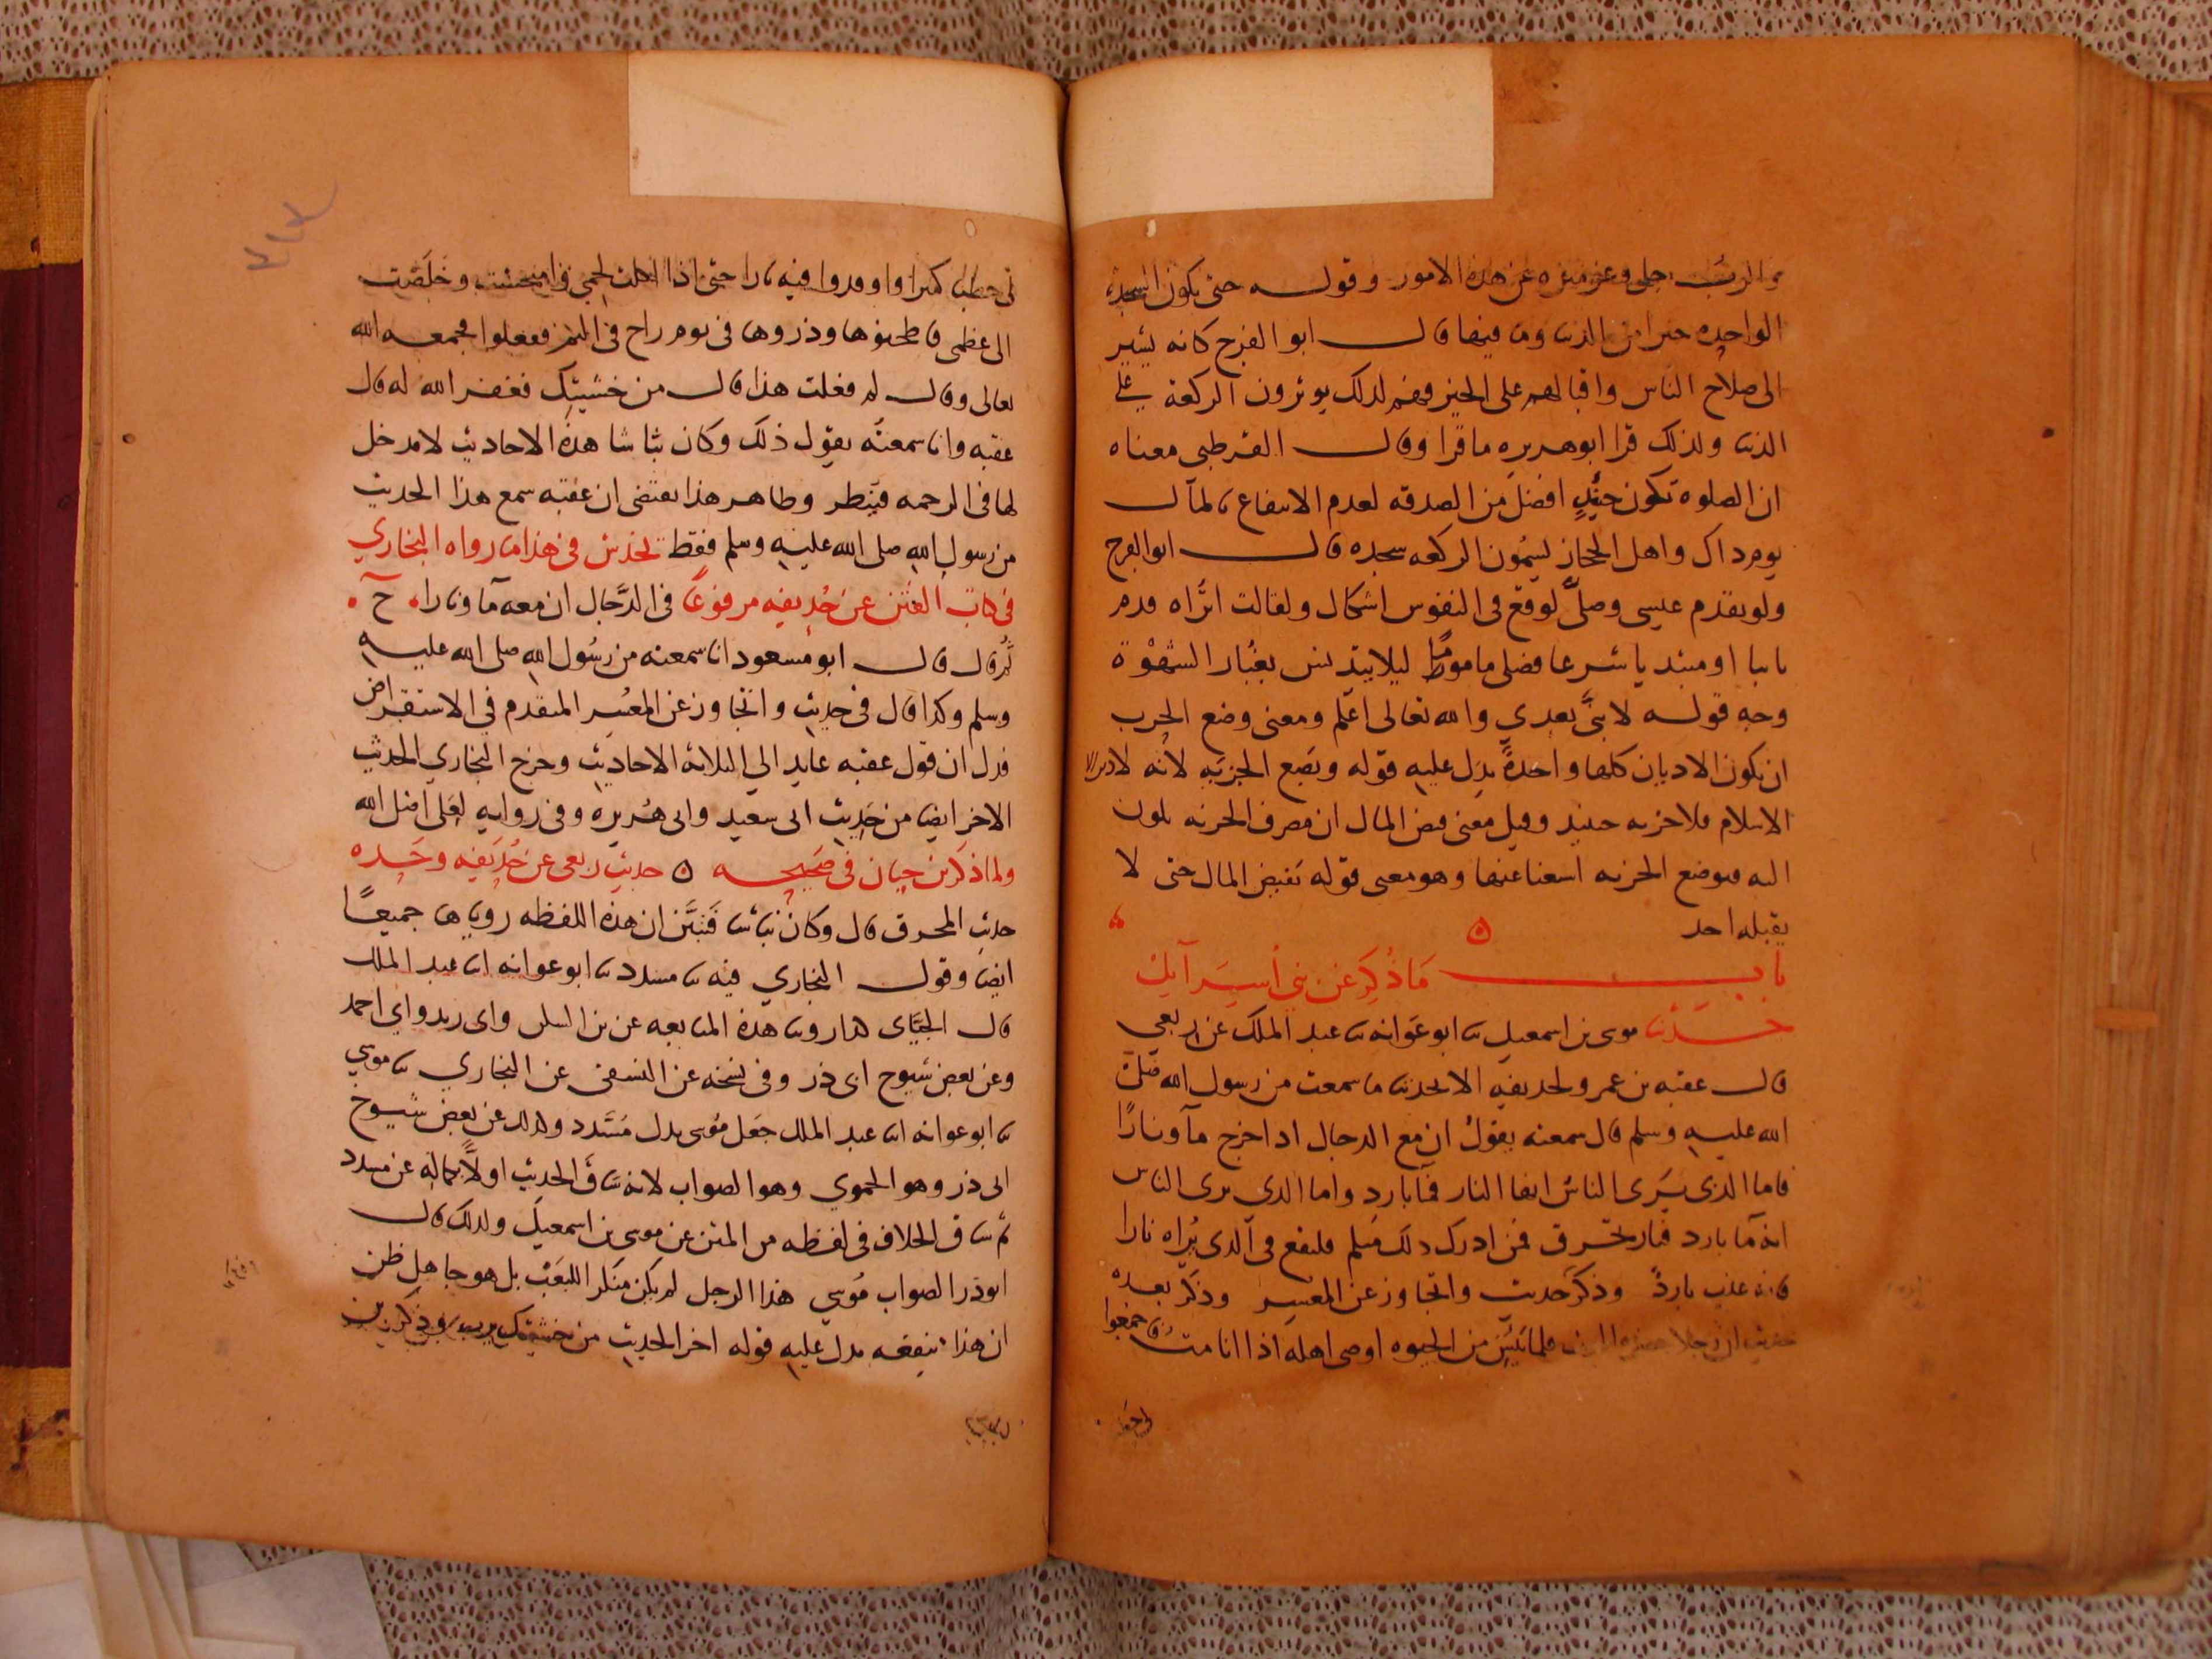 والرب جل وعز منزه عن هذه الامور وقوله حتى يكون السجده
الواحده خيرا من الدنيا وما فيها قال ابو الفرج كانه يشير
الى صلاح الناس واقبالهم على الخير فهم لذلك يوثرون الركعة على
الدنيا ولذلك قرا ابو هريره ما قرا وقال القرطبى معناه
ان الصلوه تكون حينئذٍ افضل من الصدقه لعدم الانتفاع بالمال
يوم ذاك واهل الحجاز يسمون الركعه سجده قال ابو الفرج
ولو تقدم عيسى وصلَّى لوقع فى النفوس اشكال ولقالت اتُراه قدم
نايبا او مبتديا شرعا فصلى ماموما ليلا يتدنس بغُبار الشُّهْوة
وجه قوله لا نبىَّ بعدي والله تعالى اعلم ومعنى وضع الحرب
ان تكون الاديان كلها واحدةً يدل عليه قوله ويضع الجزيه لانه لا دين الا
الاسلام فلا جزيه حينئد وقيل معنى فيض المال ان مصرف الجزيه يكون
اليه فتوضع الجزيه استغناء عنها وهو معنى قوله يفيض المال حتى لا
يقبله احد ه
باب مَا ذُكِرَ عن بني اسرآيل
حدّثنا موسى بن اسمعيل نا ابو عوانه نا عبد الملك عن ربعي
قال عقبه بن عمرو لحديفه الا تحدثنا ما سمعت من رسول الله صلى
الله عليه وسلم قال سمعته يقول ان مع الدجال اذا خرج مآ ونارًا
فاما الذى يَرى الناس انها النار فمآ بارد واما الذي يرى الناس
انه مآ بارد فنار تحرق فمن ادرك دلك منكم فليقع فى الذى يُراه نارا
فانه عذب باردٌ وذكر حديث واتجاوز عن المعسر وذكر بعده
حديث ان رجلا حضره الموت فلما يئس من الحيوه اوصى اهله اذا انا متُّ فاجمعوا
لى حطبا كثيرا واوقدوا فيه نارا حتى اذا اكلت لحمي فامتحشت وخلصت
الى عظمى فاطحنوها وذروها فى يوم راح فى اليم ففعلوا فجمعه الله
تعالى وقال لم فعلت هذا قال من خشيتك فغفر الله له قال
عقبه وانا سمعته يقول ذلك وكان نباشا هذه الاحاديث لا مدخل
لها فى الترجمه فينظر وظاهر هذا يقتضى ان عقبه سمع هذا الحديث
من رسول الله صلى الله عليه وسلم فقط يخدش فى هذا ما رواه البخاري
فى كتاب الفتن عن حُذيفه مرفوعًا فى الدَّجال ان معه مآ ونارا الح
ثم قال قال ابو مسعود انا سمعته من رسُول الله صلى الله عليه
وسلم وكذا قال فى حديث واتجاوز عن المعسر المتقدم في الاستقراض
فدل ان قول عقبه عايد الي الثلاثه الاحاديث وخرج البخاري الحديث
الاخر ايضا من حديث ابى سعيد وابى هُريره وفى روايه لعلى اضل الله
ولما ذكر ابن حبان فى صحيحه ه حديث ربعى عن حُذيفه وحده
حديث المحرق قال وكان نباشا فتبيّن ان هذه اللفظه روياها جميعًا
ايضا وقول البخاري فيه نا مسدد نا ابو عوانه نا عبد الملك
قال الجيّانى كذا روينا هذه المتابعه عن بن السكن وابى زيد وابي احمد
وعن بعض شيوخ ابى ذر وفى نسخه عن النسفى عن البخاري نا موسي
نا ابو عوانه نا عبد الملك جعل مُوسى بدل مُسَدد وكذلك عن بعض شيوخ
ابى ذر وهو الحموي وهو الصواب لانه ساق الحديث اولًا بكماله عن مسدد
ثم ساق الخلاف فى لفظه من المتن عن موسى بن اسمعيل ولذلك قال
ابو ذر الصواب مُوسي هذا الرجل لم يكن منكر البعث بل هو جاهل ظن
ان هذا ينفعه يدل عليه قوله اخر الحديث من خشيتك يرب وذكر بن